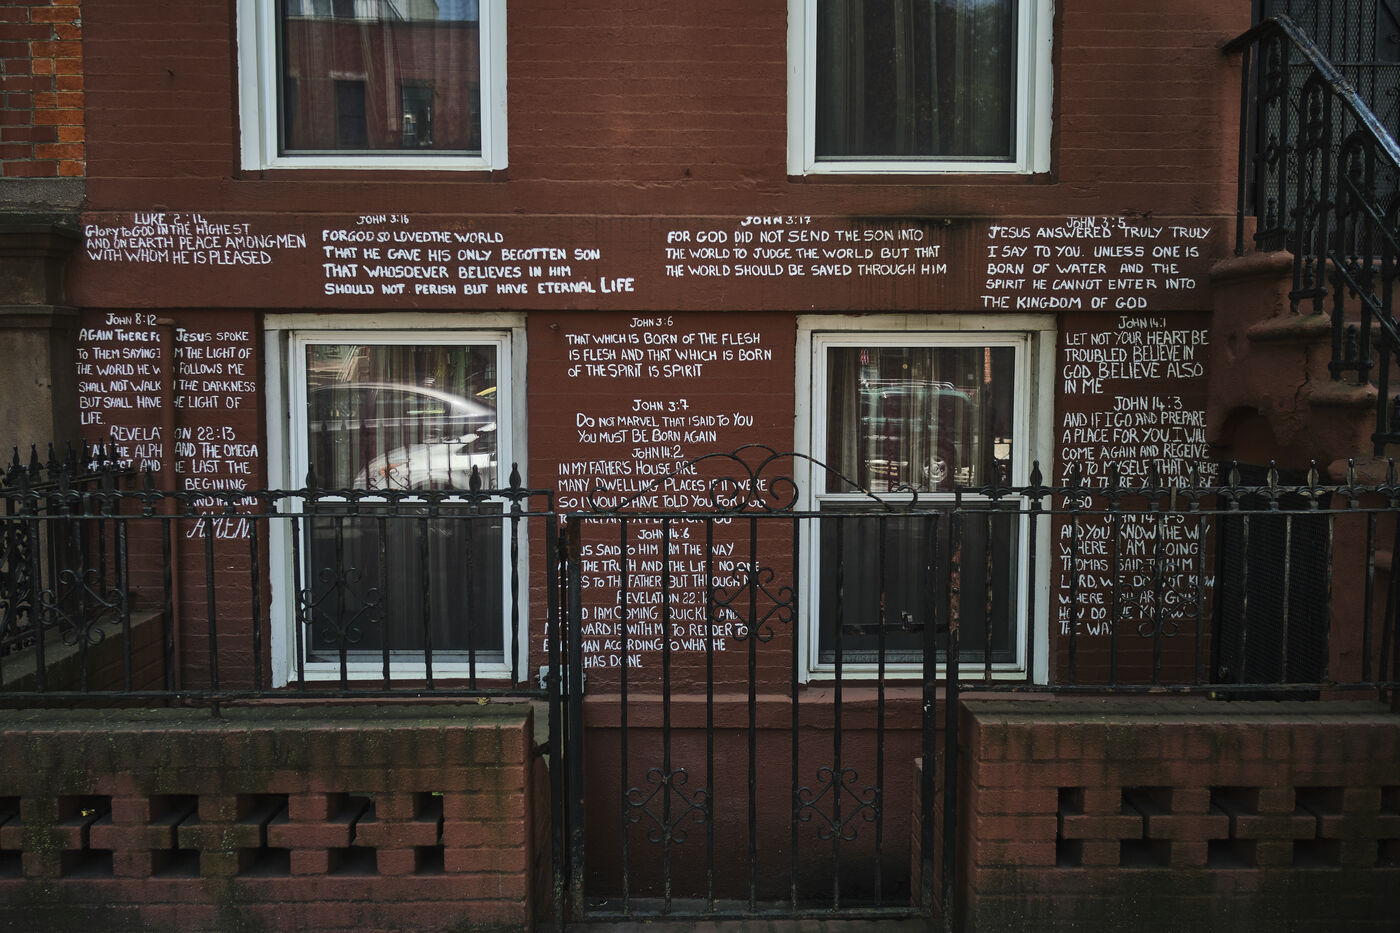 LUKE 2:14
Glory to GOD IN THE HIGHEST
AND ON EARTH PEACE AMONG MEN
WITH WHOM HE IS PLEASED.
JOHN 3:16
FOR GOD SO LOVED THE WORLD
THAT HE GAVE HIS ONLY BEGOTTEN SON
THAT WHOSOEVER BELIEVES IN HIM
SHOULD NOT PERISH BUT HAVE ETERNAL LIFE
JOHN 3:17
FOR GOD DID NOT SEND THE SON INTO
THE WORLD TO JUDGE THE WORLD BUT THAT
THE WORLD SHOULD BE SAVED THROUGH HIM
JOHN 3:5
JESUS ANSWERED TRULY TRULY
I SAY TO YOU. UNLESS ONE IS
BORN OF WATER AND THE
SPIRIT HE CANNOT ENTER INTO
THE KINGDOM OF GOD
JOHN 8:12
AGAIN JESUS SPOKE
TO THEM SAYING THE LIGHT OF
THE WORLD FOLLOWS ME
SHALL NOT WALK THE DARKNESS
BUT SHALL HAVE LIGHT OF
LIFE.
22:13
AND THE OMEGA
AND LAST THE
BEGINING
AND
AMEN.
JOHN 3:6
THAT WHICH IS BORN OF THE FLESH
IS FLESH AND THAT WHICH IS BORN
OF THE SPIRIT IS SPIRIT
JOHN 3:7
DO NOT MARVEL THAT I SAID TO YOU
YOU MUST BE BORN AGAIN
JOHN 14:2
IN MY FATHER'S HOUSE ARE
MANY DWELLING PLACES IF IT WERE
SO I WOULD HAVE TOLD YOU FOR I GO
YOU
JOHN 14:6
SAID TO HIM I AM THE WAY
THE TRUTH AND THE LIFE NO ONE
TO THE FATHER BUT THROUGH
REVELATION
I AM COMING QUICKLY AND
IS WITH ME TO RENDER TO
MAN ACCORDING TO WHAT HE
HAS DONE
JOHN 14:1
LET NOT YOUR HEART BE
TROUBLED BELIEVE IN
GOD BELIEVE ALSO
IN ME
JOHN 14:3
AND IF I GO AND PREPARE
A PLACE FOR YOU I WILL
COME AGAIN AND RECEIVE
YOU TO MYSELF THAT WHERE
I AM THERE YOU MAY BE
ALSO
JOHN 14
AND YOU KNOW THE WAY
WHERE I AM GOING
THOMAS SAID TO HIM
LORD, WE DO NOT KNOW
WHERE YOU ARE GOING
HOW DO WE KNOW
THE WAY